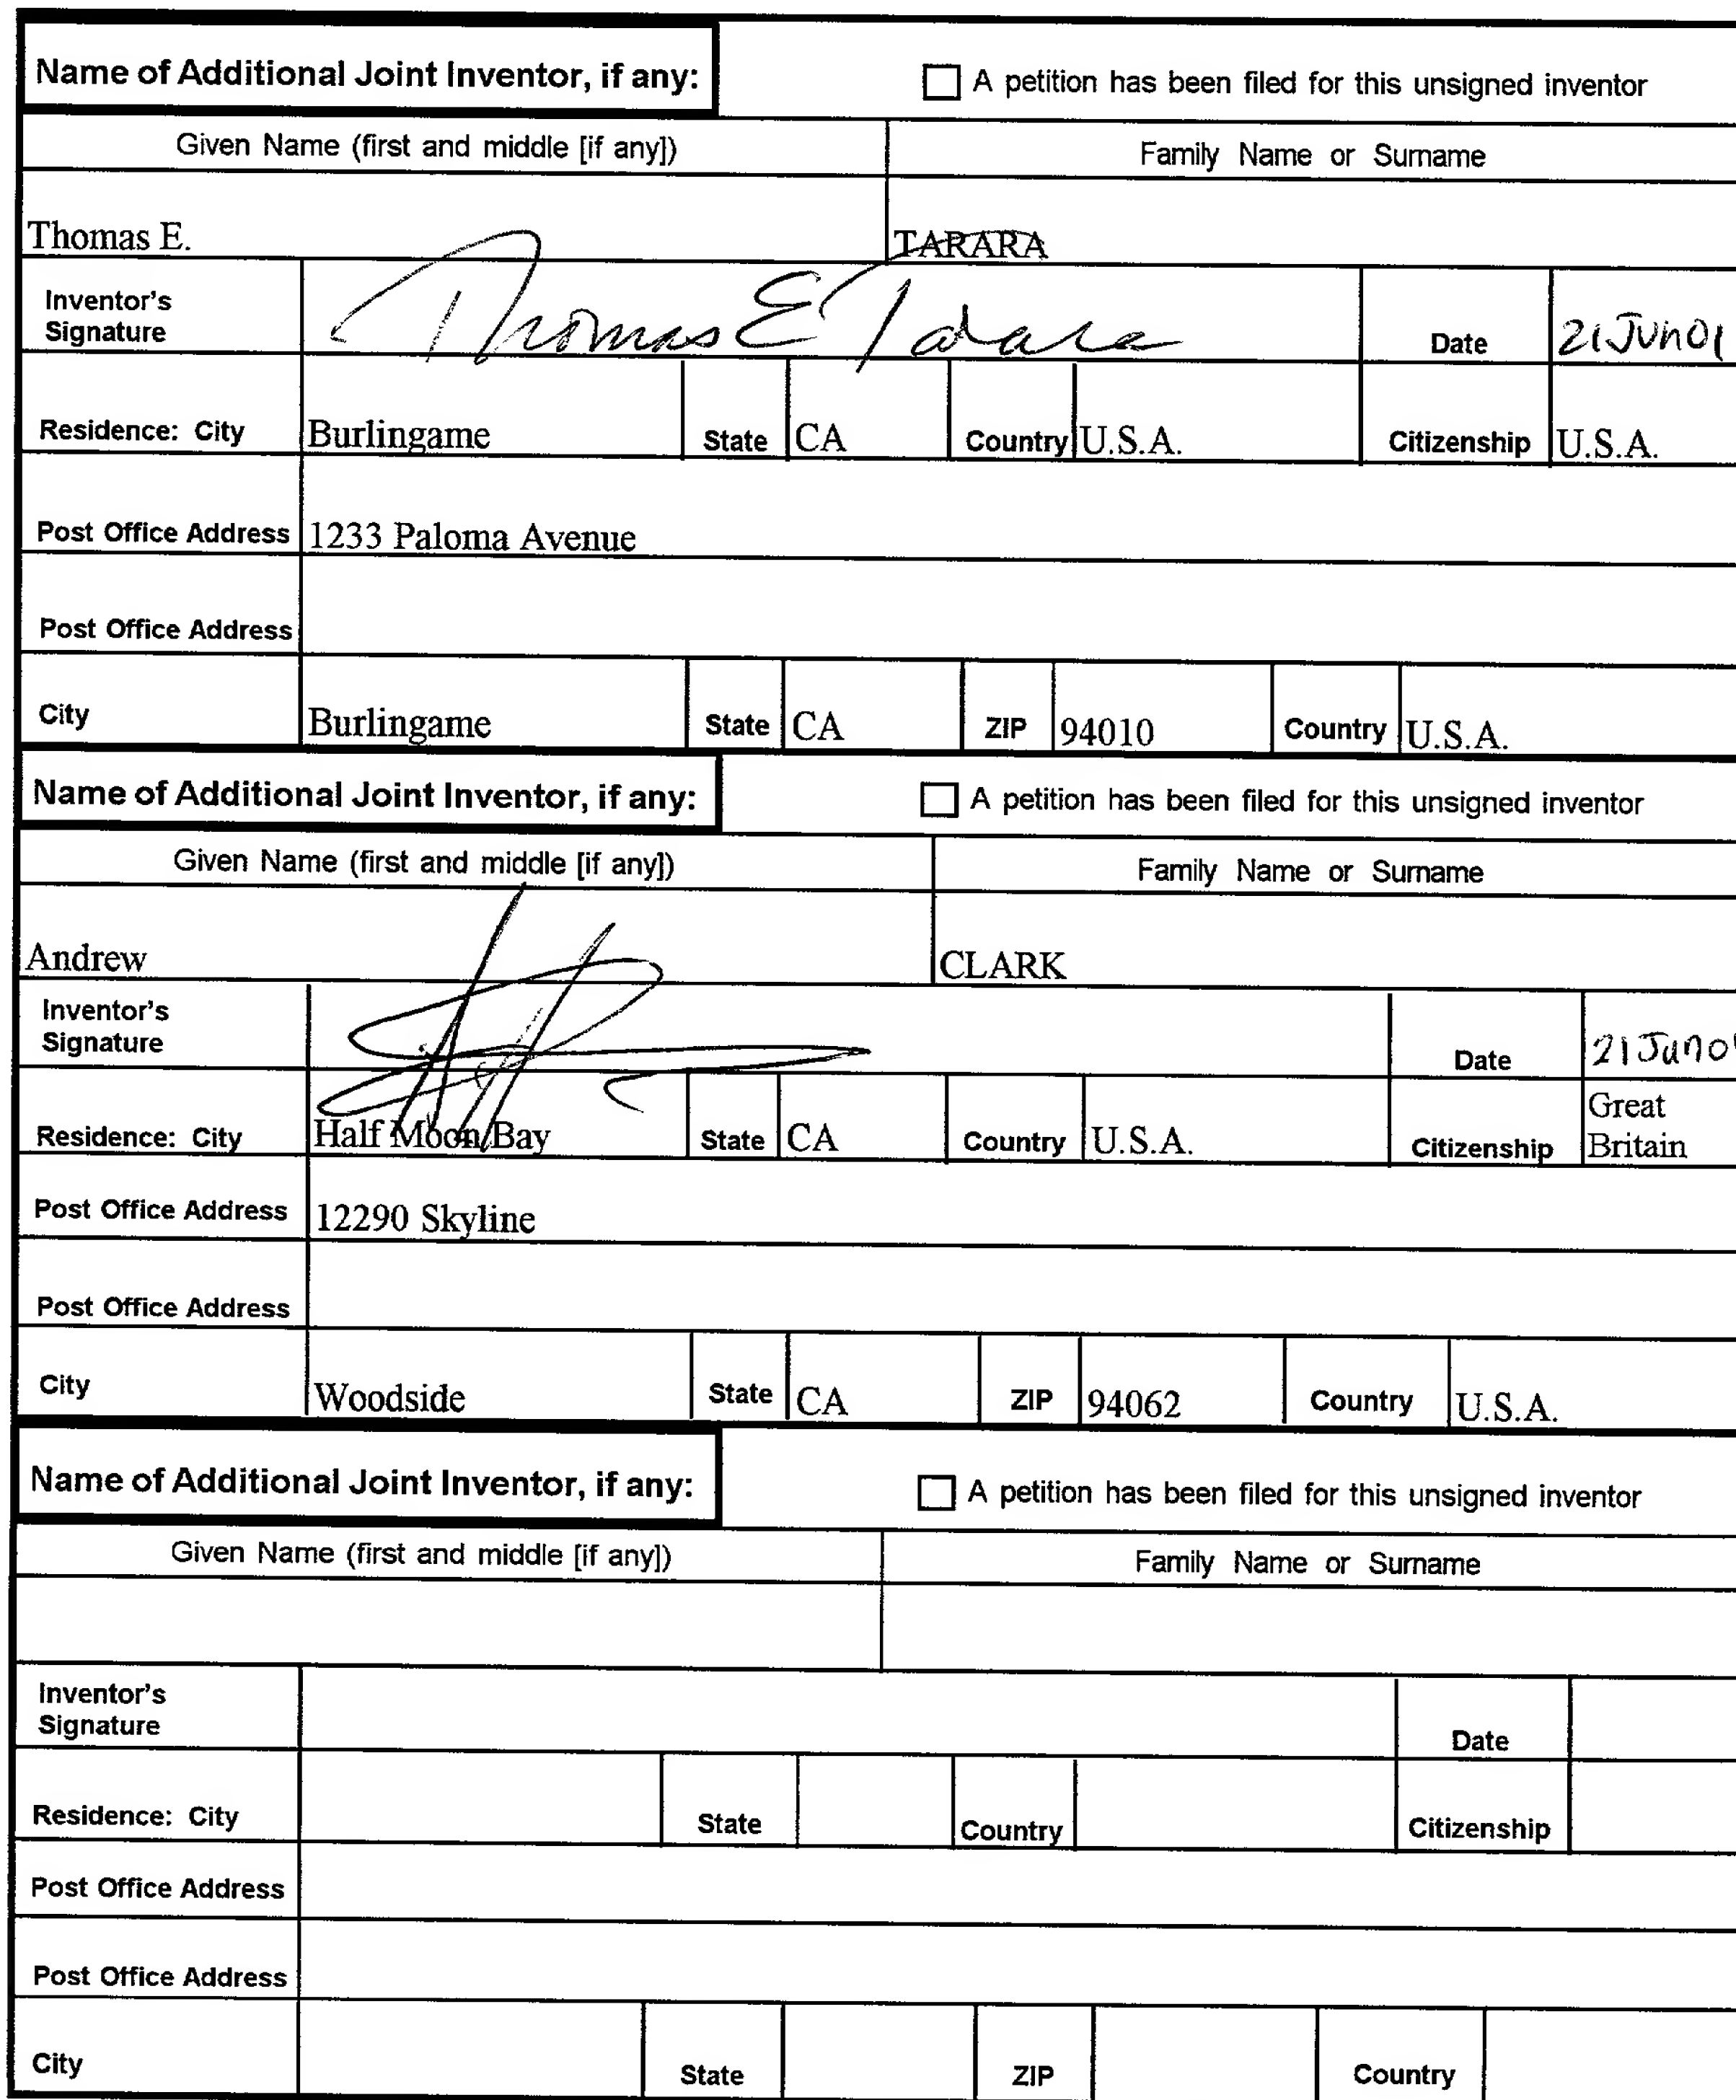 Name of Additional Joint Inventor, if any: A petition has been filed for this unsigned inventor
Given Name (first and middle [if any]) Family Name or Surname
Thomas E. TARARA
Inventor's Signature Thomas E Tarara Date 21 Jun 01
Residence: City Burlingame State CA Country U.S.A. Citizenship U.S.A.
Post Office Address 1233 Paloma Avenue
Post Office Address
City Burlingame State CA ZIP 94010 Country U.S.A.
Name of Additional Joint Inventor, if any: A petition has been filed for this unsigned inventor
Given Name (first and middle [if any]) Family Name or Surname
Andrew CLARK
Inventor's Signature Date 21 Jun 0
Residence: City Half Moon Bay State CA Country U.S.A. Citizenship Great Britain
Post Office Address 12290 Skyline
Post Office Address
City Woodside State CA ZIP 94062 Country U.S.A.
Name of Additional Joint Inventor, if any: A petition has been filed for this unsigned inventor
Given Name (first and middle [if any]) Family Name or Surname
Inventor's Signature Date
Residence: City State Country Citizenship
Post Office Address
Post Office Address
City State ZIP Country